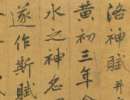 洛神賦并
黃初三年
水之神名
遂作斯賦